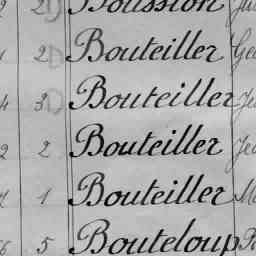 2 Boussion Ju
2 Bouteiller Ge
4 3 Bouteiller Je
2 2 Bouteiller Je
1 Bouteiller M
6 5 Bouteloup